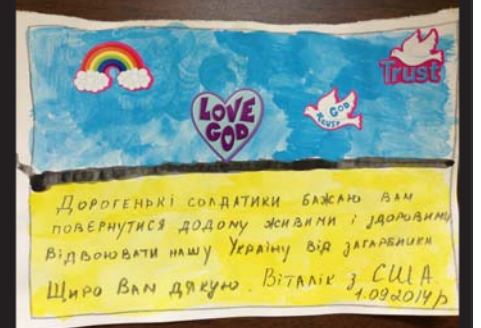 Trust
LOVE
GOD
GOD
Дорогенькі солдатики бажаю вам
повернутися додому живими і здоровими
Відвоювати нашу Україну від загарбника
Щиро Вам дякую. Віталік з США
1.09.2014р